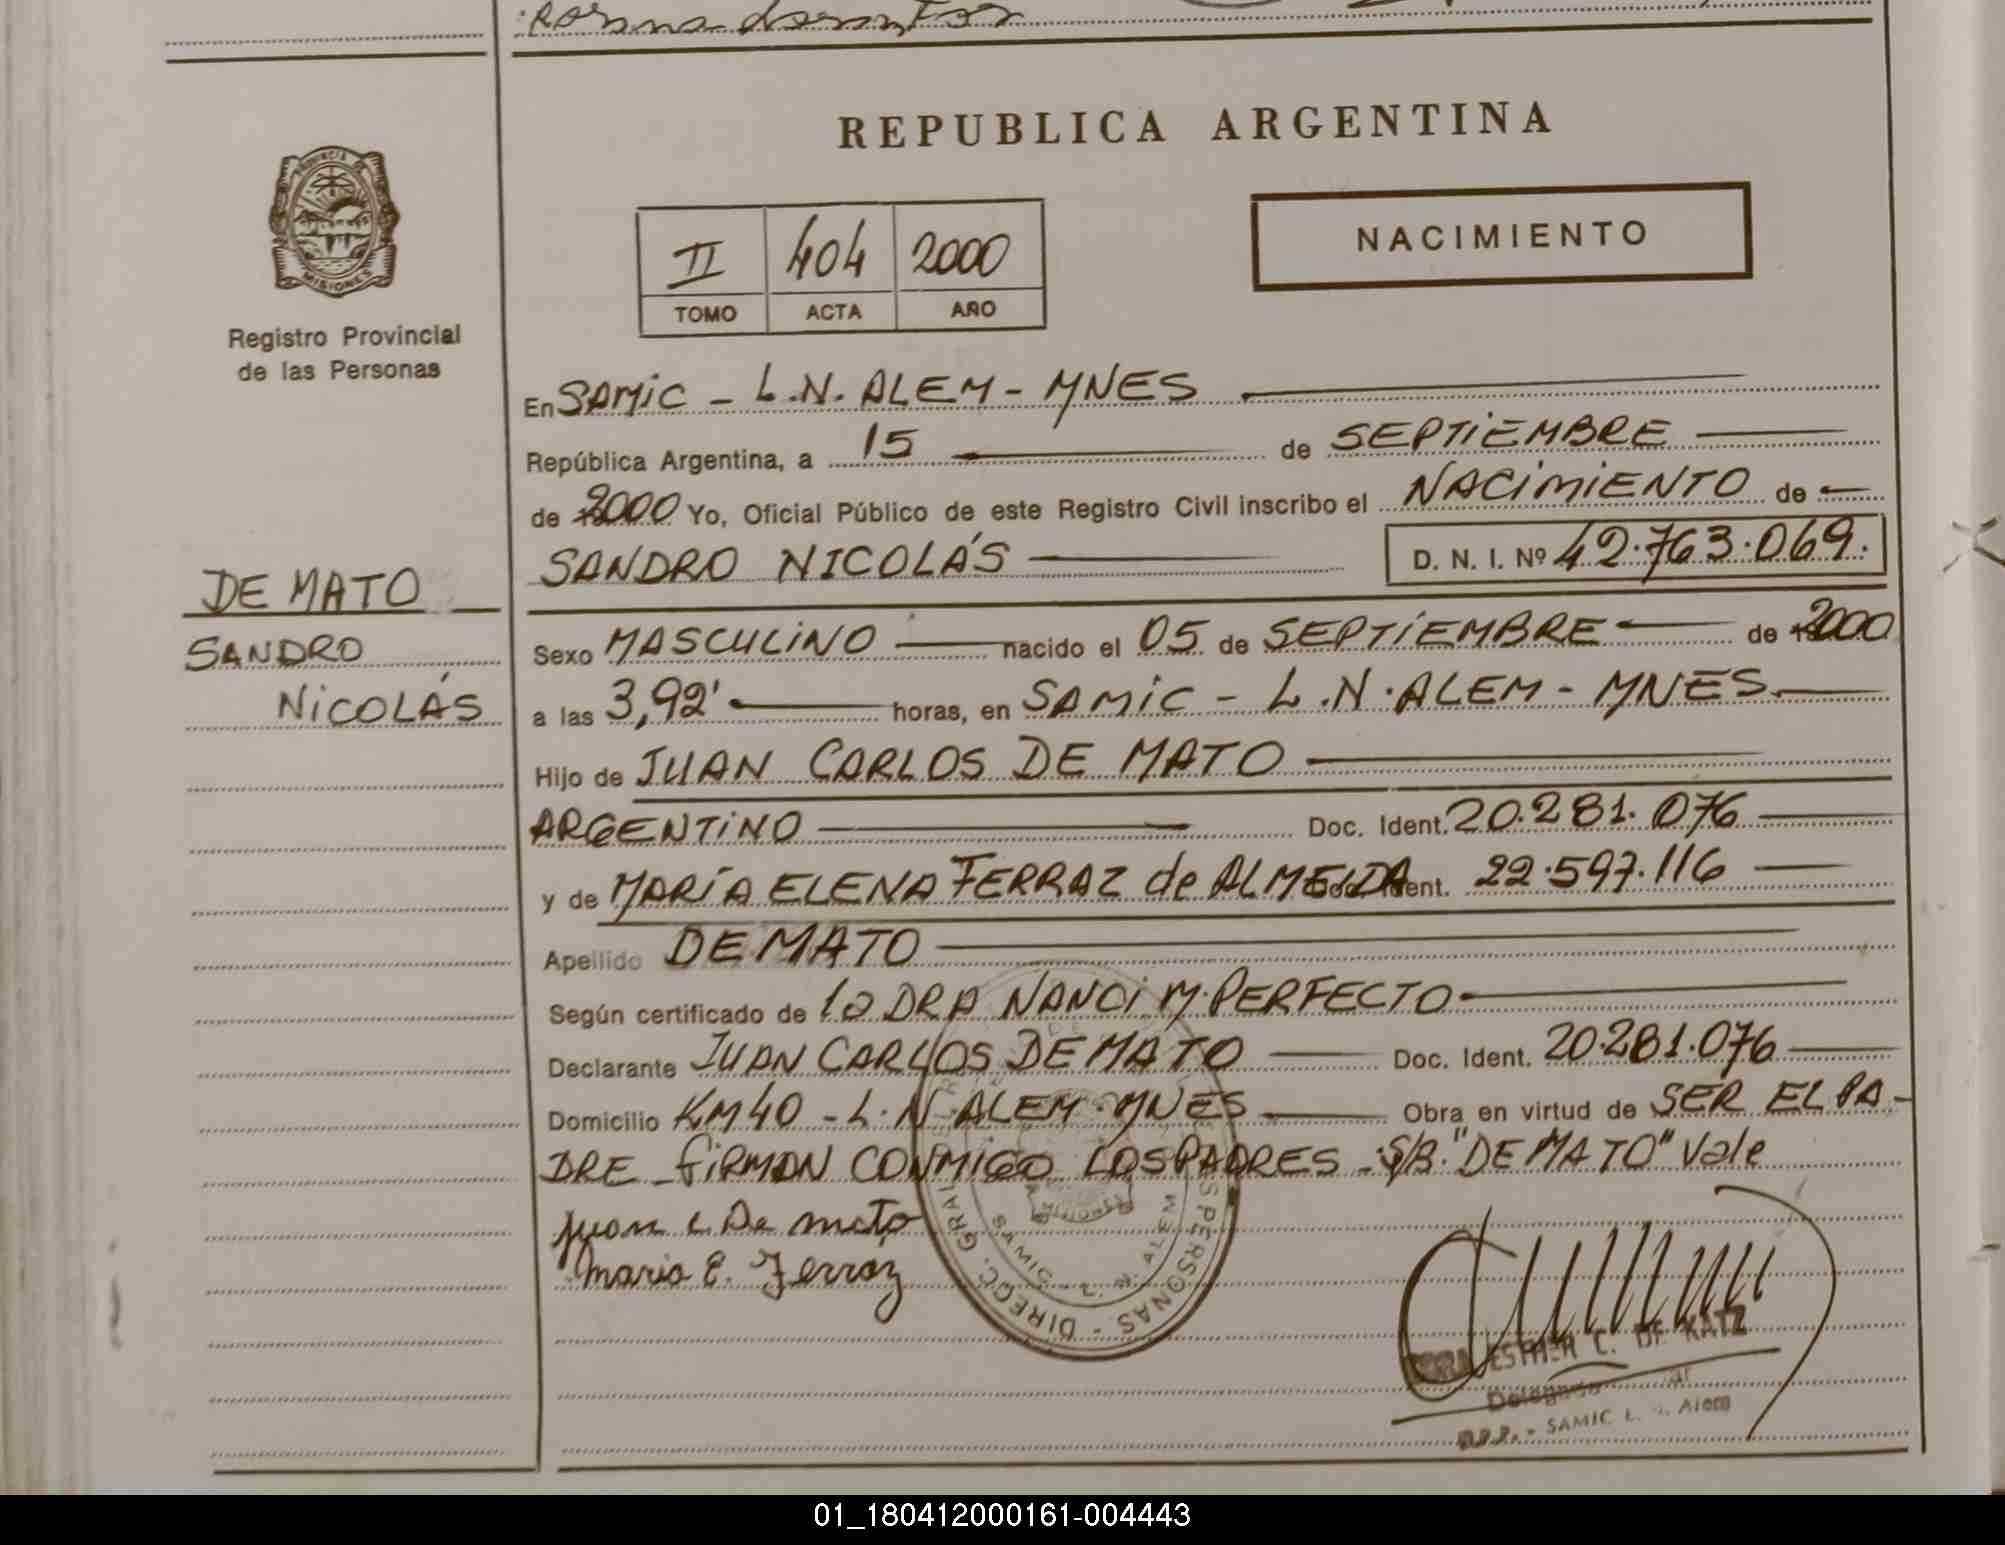 REPUBLICA ARGENTINA
PROVINCIA DE
MISIONES
Registro Provincial
de las Personas
II 404 2000
TOMO ACTA AÑO
NACIMIENTO
En SAMIC - L.N. ALEM - MNES
República Argentina, a 15 de SEPTIEMBRE
de 2000 Yo, Oficial Público de este Registro Civil inscribo el NACIMIENTO de
SANDRO NICOLÁS D. N. I. Nº 42.763.069.
DE MATO
SANDRO
NICOLÁS
Sexo MASCULINO nacido el 05 de SEPTIEMBRE de 2000
a las 3,92' horas, en SAMIC - L.N. ALEM - MNES.
Hijo de JUAN CARLOS DE MATO
ARGENTINO Doc. Ident. 20.281.076
y de MARÍA ELENA FERRAZ de ALMEIDA Doc. Ident. 22.597.116
Apellido DE MATO
Según certificado de la DRA NANCI M. PERFECTO
Declarante JUAN CARLOS DE MATO Doc. Ident. 20.281.076
Domicilio KM 40 - L.N. ALEM - MNES Obra en virtud de SER EL PA-
DRE - FIRMAN CONMIGO LOS PADRES - S/R. "DE MATO" Vale
Juan C De mato
Maria E. Ferraz
PERSONAS - DIRECC. GRAL
MISIONES
SAMIC - L. N. ALEM
ESTHER C. DE KATZ
SAMIC L. N. Alem
01_180412000161-004443